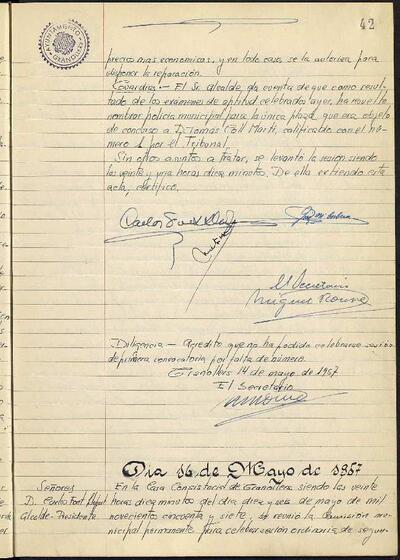 42
AYUNTAMIENTO
precios mas economicos, y en todo caso, se la autoriza para
disponer la reparación.
Guardias.- El Sr. Alcalde da cuenta de que como resul-
tado de los exámenes de aptitud celebrados ayer, ha resuelto
nombrar policía municipal para la única plaza que era objeto
de concurso a D. Tomas Coll Marti, calificado con el nú-
mero 1 por el Tribunal.
Sin otros asuntos a tratar, se levantó la sesión siendo
las veinte y una horas diez minutos. De ella extiendo esta
acta, certifico.
El Secretario
Diligencia - Acredito que no ha podido celebrarse sesión
de primera convocatoria por falta de número.
Granollers 14 de mayo de 1957
El Secretario
Dia 16 de Mayo de 1957
Señores
D. Carlos Font
Alcalde-Presidente
En la Casa Consistorial de Granollers siendo las veinte
horas diez minutos del día diez y seis de mayo de mil
novecientos cincuenta y siete, se reunió la Comisión mu-
nicipal permanente para celebrar sesión ordinaria de segun-